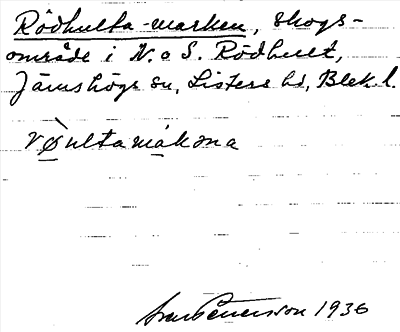 Rödhulta-marken, skogs-
område i N. o S. Rödhult,
Jämshögs sn, Listers hd, Blek. l.
rø̀ultamákọna
Petersson 1936